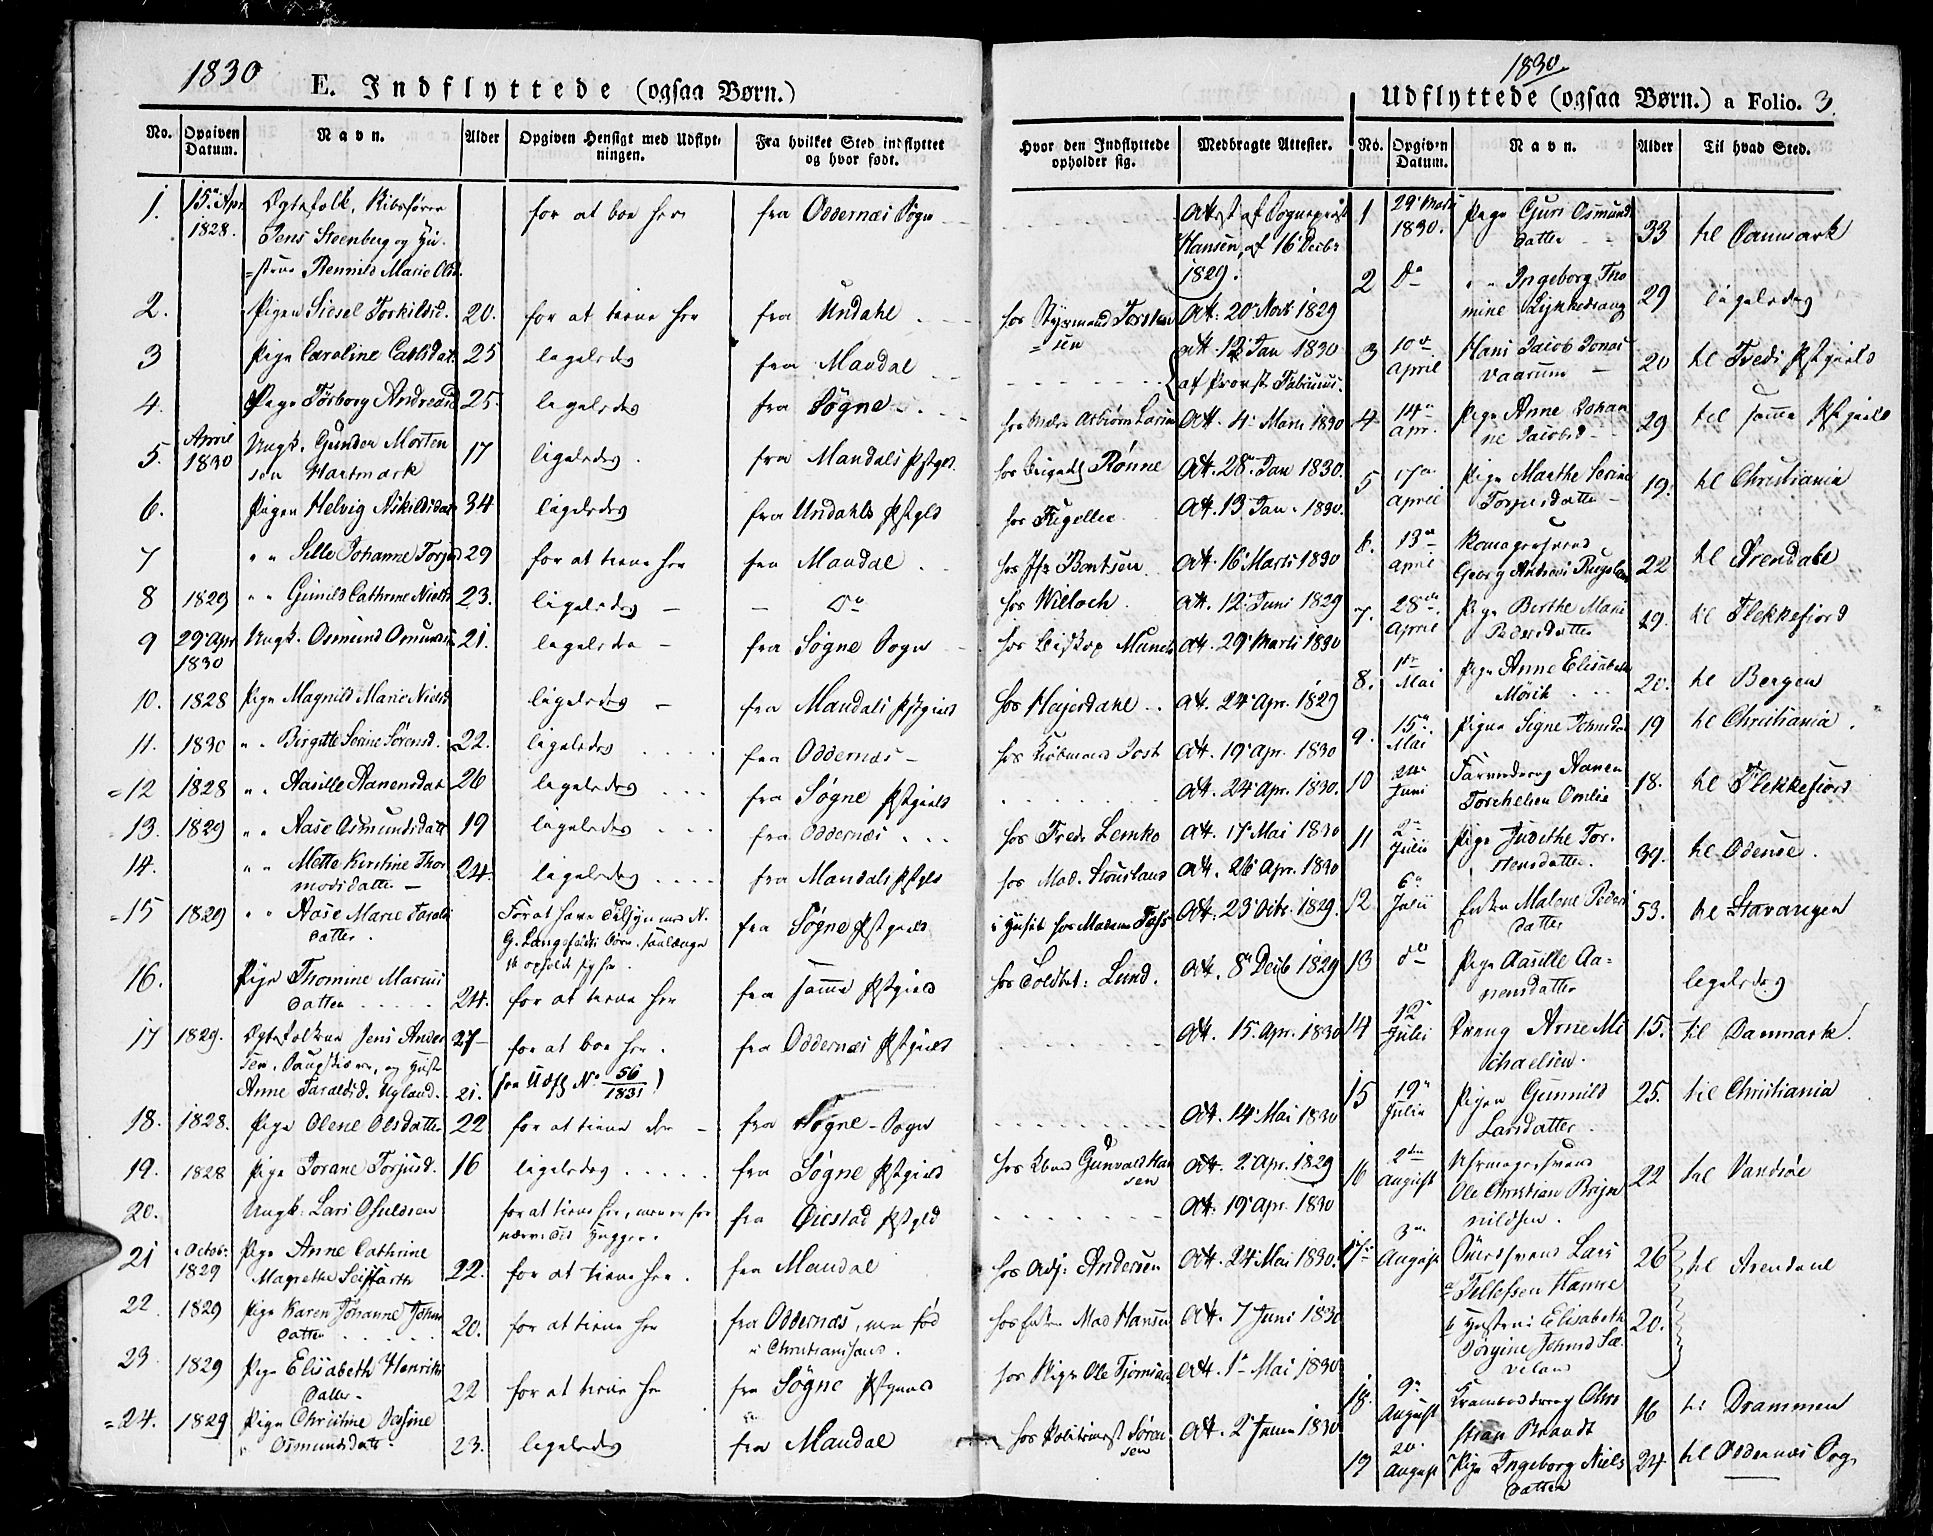 1830
E. Indflyttede (ogsaa Børn.)
No. Opgiven Datum. Navn. Alder Opgiven Hensigt med Udflytningen. Fra hvilket Sted indflyttet og hvor født.
1. 15de Apr 1828. Egtefolk,
Jens Steenberg og Hustrue Rennild Marie Olsd. for at boe her fra Oddernæs Sogn
2. Pigen Siesel Torkildsd. 20. for at tiene her fra Undahl
3 Pige Caroline Carlsdat. 25 ligeledes fra Mandal
4. Pige Torborg Andreasd 25. ligeledes fra Søgne
5. April 1830 Ungk. Gunder Mortensen Hartmark 17 ligeledes. fra Mandals Pstgld.
6. Pigen Helvig Nikilsdat 34 ligeledes fra Undahls Pstgld
7 " " Sille Johanne Torjusd 29 for at tiene her fra Mandal
8 1829 " " Gunild Cathrine Nielsd 23. ligeledes - - Do
9 29 Apr 1830 Ungk. Osmund Osmunds 21. ligeledes - fra Søgne Sogn
10. 1828 Pige Magnild Marie Nielsd ligeledes - fra Mandals Pstgield
11. 1830 " " Birgitte Serine Sørensd. 22. ligeledes fra Oddernæs -
=12 1828 " " Aasille Aanensdat 26 ligeledes fra Søgne Pstgield
=13. 1829 " " Aase Osmundsdatt 19 ligeledes fra Oddernæs
14. " " Mette Kirstine Thormodsdatter - 24. ligeledes fra Mandals Pstgld
=15 1829 " " Aase Marie Taralsdatter. For at have Tilsyn med N. G. Langfeldts Børn, saalænge de opholde sig her. fra Søgne Pstgield
16. Pige Thomine Mariusdatter 24. for at tiene her fra samme Pstgield
17 1829. Egtefolkene Jens Andersen, og Hust. Anne Taraldsd. Ugland. 27 21. for at boe her. (see Udfl No 56/1831) fra Oddernæs Pstgield
18. 1828. Pige Olene Olsdatter 22 for at tiene her - fra Søgne-Sogn
19. 1828 Pige Torane Torjusd. 16 ligeledes fra Søgne Pstgield
20. Ungk: Lars Osuldsen for at tiene her, men er for nærværende fra Øiestad Pstgld
21 Octob: 1829 Pige Anne Cathrine Magrethe Seiffarth 22. for at tiene her. fra Mandal
22. 1829 Pige Karen Johanne Johnsdatter 20. for at tiene her fra Oddernæs, men fød i Christiansand.
23. 1829 Pige Elisabeth Henriksdatter 22 for at tiene her fra Søgne Pstgield
=24. 1829 Pige Christine Osmundsdatt. 23. ligeledes fra Mandal
1830.
Udflyttede (ogsaa Børn.) a Folio. 3.
Hvor den Indflyttede opholder sig. Medbragte Attester. No. Opgiven Datum. Navn. Alder Til hvad Sted.
Att af Sogneprest Hansen, af 16 Decbr 1829.
hos Styrmand Torstensen Att. 20 Novb 1829
att. 12 Jan 1830 af Provst Fabricius.
Att. 4 Marts 1830
hos Rønne Att. 28 Jan 1830.
hos Att. 13 Jan. 1830.
hos Jfr Berntsen Att. 16 Marts 1830
hos Willoch. Att. 12 Juni 1829
hos Biskop Munch Att. 29 Marts 1830
hos Heierdahl Att. 24 Apr. 1829
hos Kiøbmand Jost Att. 19 Apr. 1830
Att. 24 Apr. 1830.
hos Fredr Lemko Att. 17 Mai 1830
hos Mad. Att. 26 Apr. 1830
i Huset hos Madame Att. 23 Octb. 1829.
hos Toldbet: Lund. Att. 8 Decb 1829
Att. 15. Apr. 1830
Att. 14 Mai 1830
hos Gunvald Hansen Att. 2 Apr. 1829
Att. 19 Apr. 1830
hos Adj: Andersen Att. 24 Mai 1830.
hos Enken Mad Hansen Att. 7 Juni 1830
hos Ole Att. 1 Mai 1830
hos Politimest Sørensen Att. 2 Juni 1830
1 29 Marts 1830. Pige Guri Osmundsdatter 33 til Danmark
2 Do " " Ingeborg Thomine 29 ligeledes
3 10de April Hans Jacob Jonas Vaarum 20 til Pstgield
4 14de Apr. Pige Anne Johanne Jacobsd - 29 til samme Pstgield
5 17de April Pige Marthe Serine Torjusdatter - 19. til Christiania
6. 13de April Georg Andreas 22 til Arendahl
7. 28de April Pige Berthe Marie Pedersdatter 19. til Flekkefiord
8. 1ste Mai Pige Anne Elisabeth Mørik 20. til Bergen
9. 15de Mai Pigen Signe Johnsdat 19 til Christiania.
10 Juni Aanen Torchelsen Omlie 18. til Flekkefiord
11 2de Julii Pige Judithe Torstensdatter. 34. til Odense.
12 6te Julii Enken Malene Pedersdatter 53. til Stavangen
13 do Pige Aasille Aanensdatter ligeledes
14 12 Julii Dreng Arne Michaelsen. 15. til Danmark.
15 19de Julii Pigen Gunnild Larsdatter. 25. til Christiania
16 2den August Uhrmagersvend Ole Christian Brynildsen. 22 til Vandsøe
17 3die August Lars Tellefsen Hanne 26
b Hustru Elisabeth Jørgine Johnsd Sæveland 20. til Arendahl
18. 9de August Christian Brandt 16 til Drammen
19 20. August Pige Ingeborg Nielsdatter 24. til Oddernæs Sogn